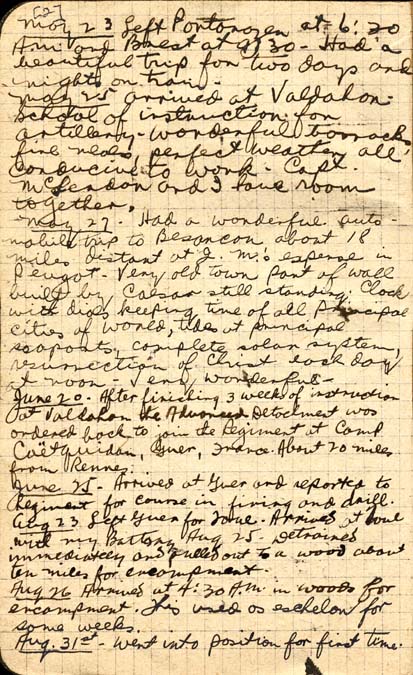 (27)
May 23 Left Pontanezen at 6:20
A.M. and Brest at 9:30 - Had a
beautiful trip for two days and
nights on train.
May 25 arrived at Valdahon.
School of instruction for
artillery. wonderful barracks
fine meals, perfect weather all
conducive to work. Capt.
McLendon and I have room
together.
May 27. Had a wonderful auto-
mobile trip to Besancon about 18
miles distant at J. M.'s expense in
Peugot. Very old town part of wall
built by Caesar still standing. Clock
with dials keeping time of all Principal
cities of World, tides at principal
seaports, complete solar system,
resurrection of Christ each day
at noon - Very wonderful -
June 20. After finishing 3 weeks of instruction
at Valdahon the Advanced Detachment was
ordered back to join the Regiment at Camp
Coetquidan, Guer, France. About 20 miles
from Rennes.
June 25 - Arrived at Guer and reported to
Regiment for course in firing and drill.
Aug 23 Left Guer for Toul. Arrived at Toul
with my Battery Aug 25 - detrained
immediately and pulled out to a wood about
ten miles for encampment.
Aug 26 Arrived at 4:30 A.M. in woods for
encampment. This used as eschelon for
some weeks.
Aug. 31st - Went into position for first time.